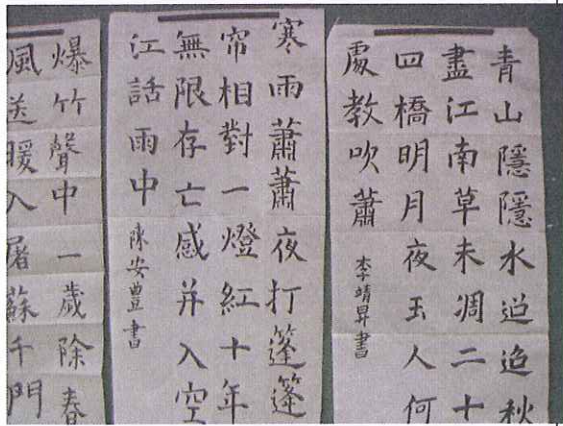 青山隱隱水迢迢秋
盡江南草未凋二十
四橋明月夜玉人何
處教吹蕭
李靖昇書
寒雨蕭蕭夜打篷篷
帘相對一燈紅十年
無限存亡感并入空
江話雨中
陳安豊書
爆竹聲中一歲除春
風送暖入屠蘇千門